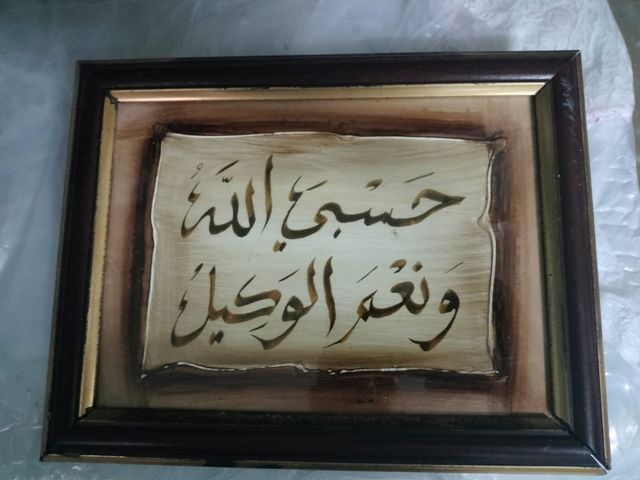 حَسْبِيَ اللَّهُ
وَنِعْمَ الوَكِيلُ